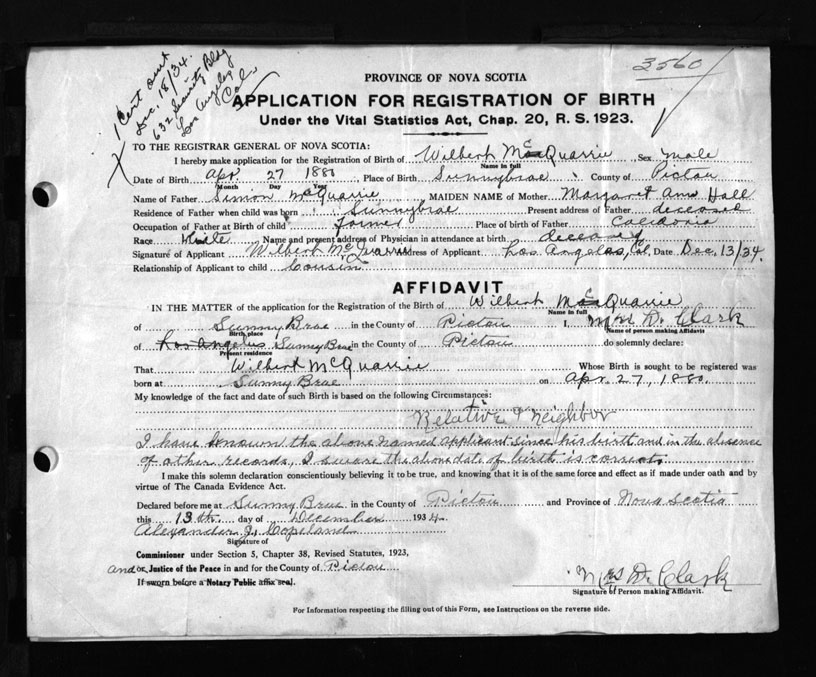 3560
1 Cert out
Dec. 18/34.
632 Security Bldg
Los Angeles
Cal.
PROVINCE OF NOVA SCOTIA
APPLICATION FOR REGISTRATION OF BIRTH
Under the Vital Statistics Act, Chap. 20, R. S. 1923.
X TO THE REGISTRAR GENERAL OF NOVA SCOTIA:
I hereby make application for the Registration of Birth of Wilbert McQuarrie Sex male
Name in full
Date of Birth apr 27 1880, Place of Birth Sunnybrae County of Pictou
Month Day Year
Name of Father Simon McQuarrie MAIDEN NAME of Mother Margaret Ann Hall
Residence of Father when child was born Sunnybrae Present address of Father deceased
Occupation of Father at Birth of child Farmer Place of birth of Father Caledonia
Race White Name and present address of Physician in attendance at birth deceased
Signature of Applicant Wilbert McQuarrie Address of Applicant Los Angeles, Cal, Date Dec, 13/34.
Relationship of Applicant to child Cousin
AFFIDAVIT
IN THE MATTER of the application for the Registration of the Birth of Wilbert McQuarrie
Name in full
of Sunny Brae in the County of Pictou I, Mrs D. Clark
Birth place Name of person making Affidavit
of Los Angeles Sunny Brae in the County of Pictou do solemnly declare:
Present residence
That Wilbert McQuarrie Whose Birth is sought to be registered was
born at Sunny Brae on apr. 27, 1880.
My knowledge of the fact and date of such Birth is based on the following Circumstances:
Relative & Neighbor
I have known the above named applicant since his birth and in the absence
of other records, I swear the above date of birth is correct.
I make this solemn declaration conscientiously believing it to be true, and knowing that it is of the same force and effect as if made under oath and by
virtue of The Canada Evidence Act.
Declared before me at Sunny Brae in the County of Pictou and Province of Nova Scotia
this 13th. day of December 1934.
Alexander J. Copeland
Signature of
Commissioner under Section 5, Chapter 38, Revised Statutes, 1923,
and or Justice of the Peace in and for the County of Pictou
If sworn before a Notary Public affix seal.
Mrs D. Clark
Signature of Person making Affidavit.
For Information respecting the filling out of this Form, see Instructions on the reverse side.